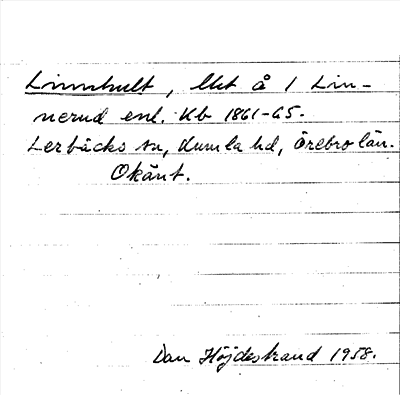 Linnhult, lht å 1 Lin-
nerud enl. Kb 1861-65.
Lerbäcks sn, Kumla hd, Örebro län.
Okänt.
Dan Höjdestrand 1958.